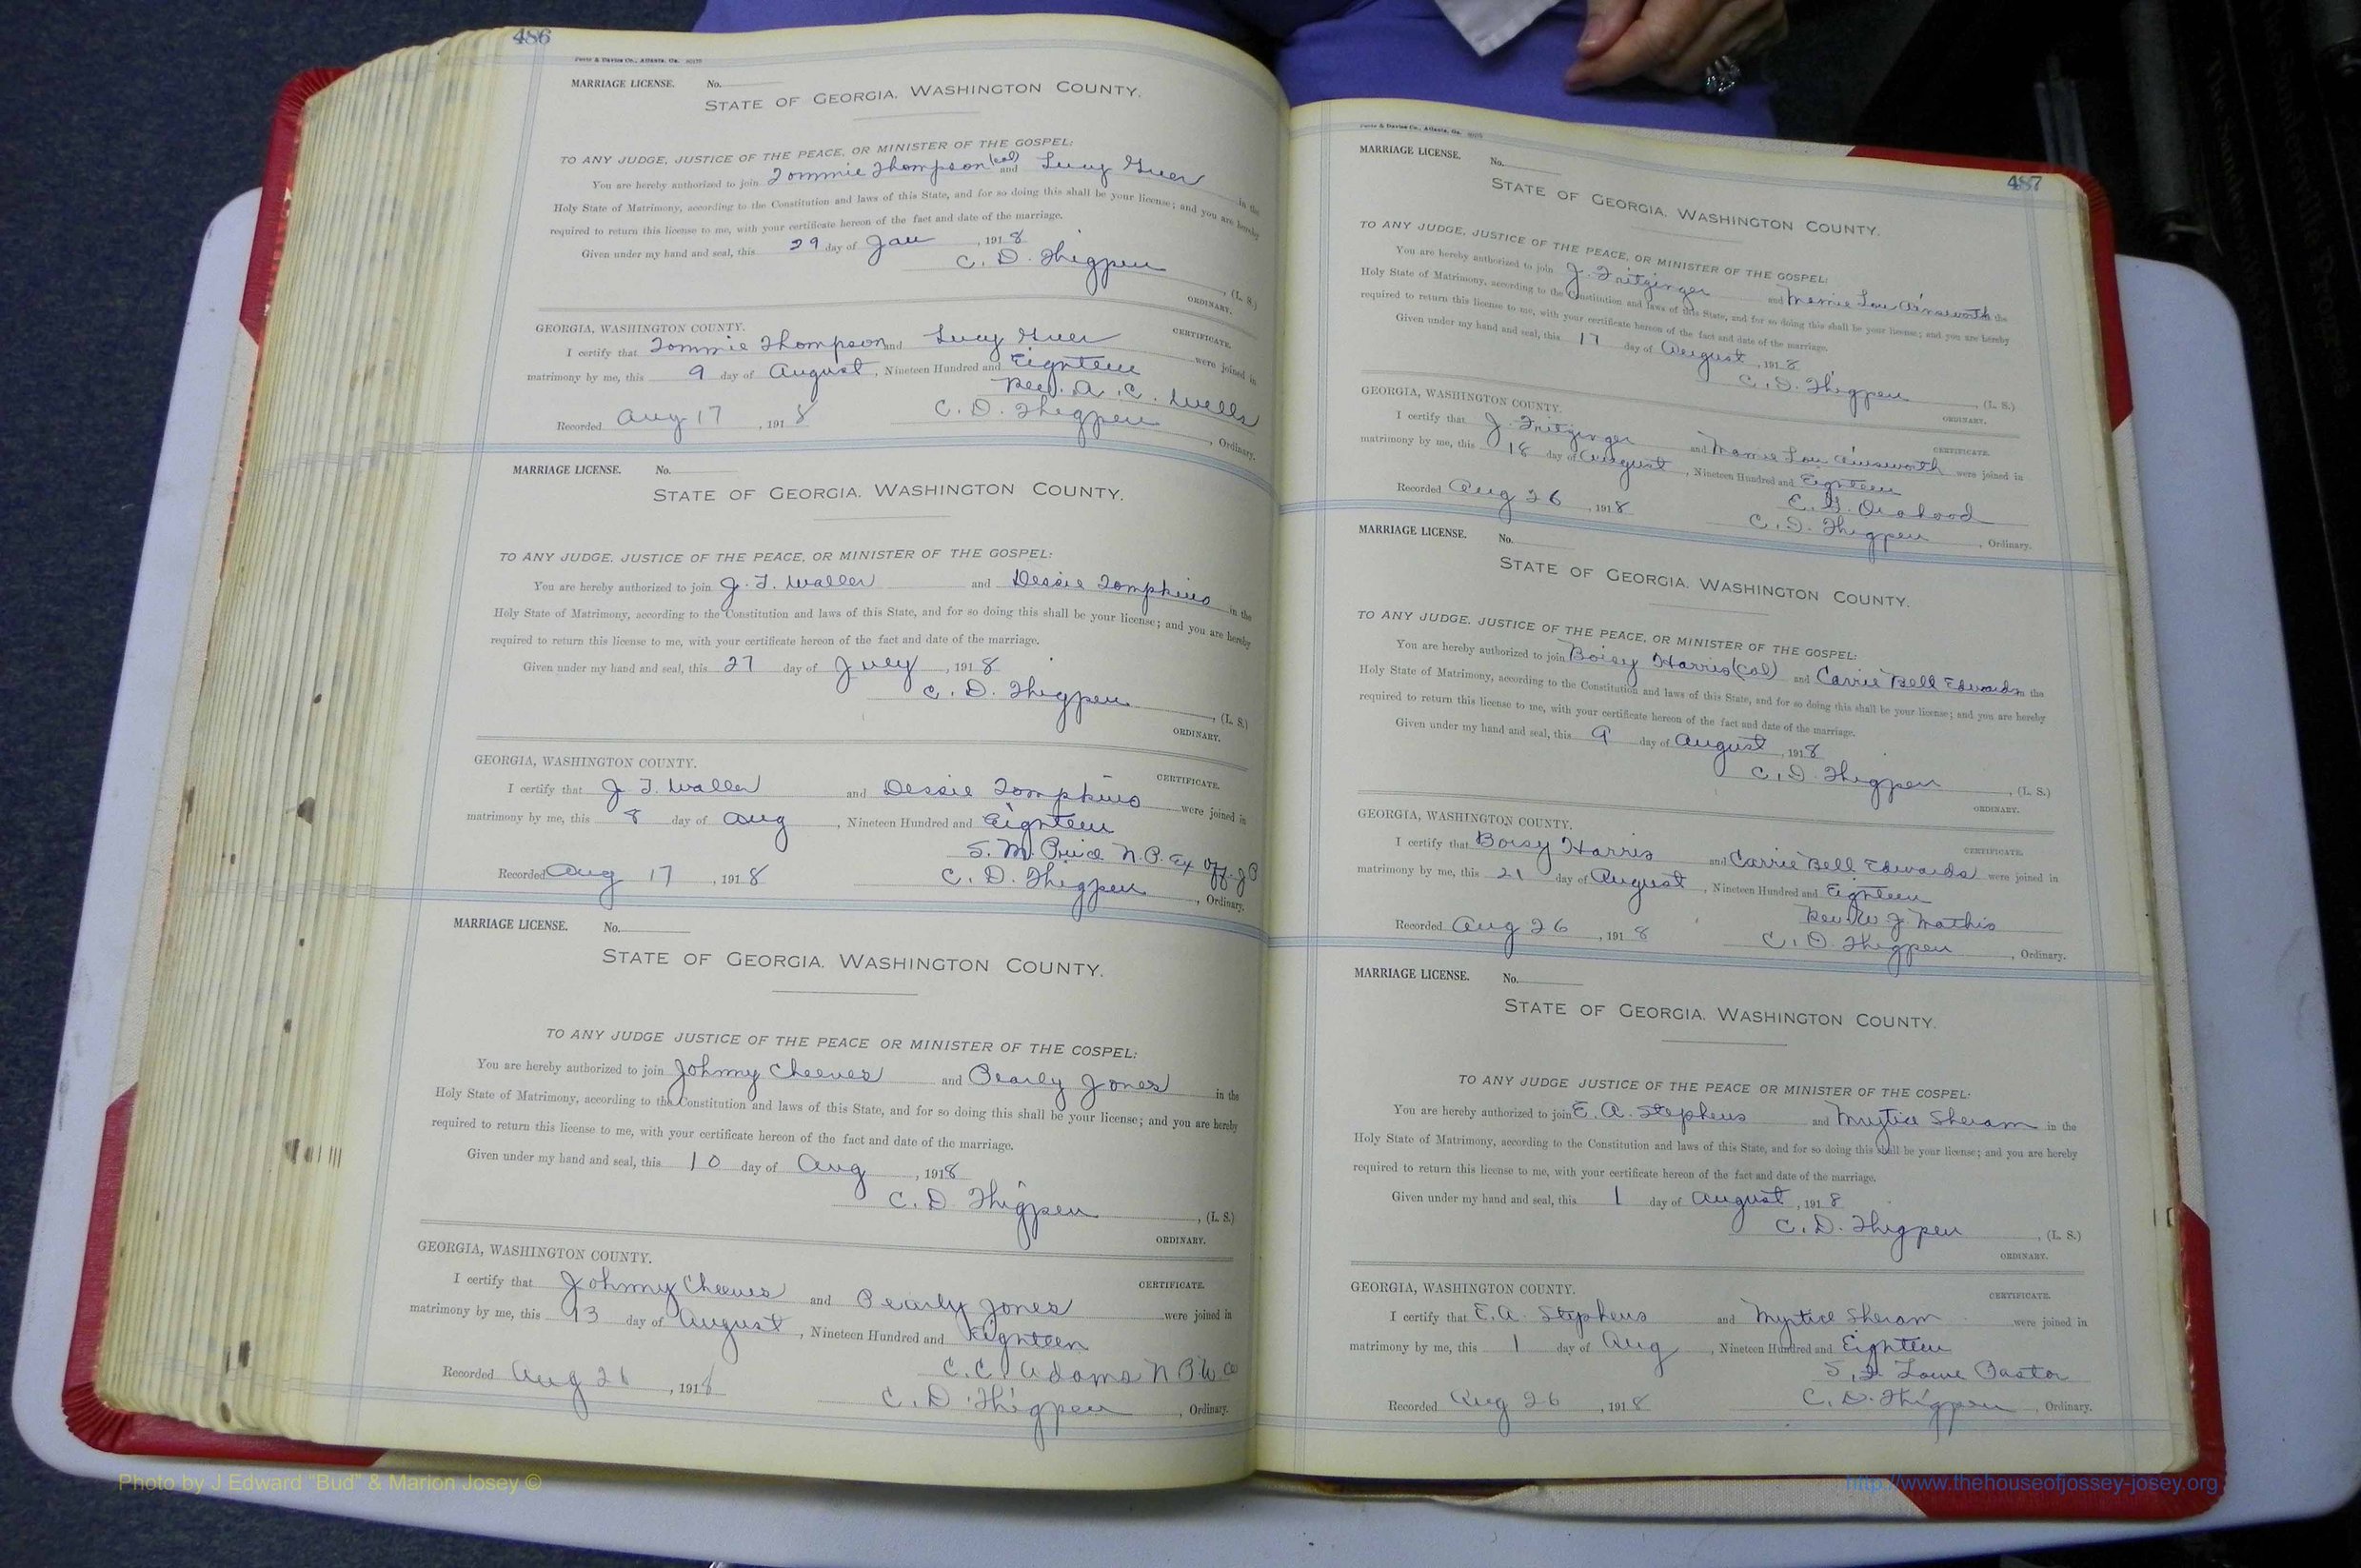 486
MARRIAGE LICENSE. No.
STATE OF GEORGIA. WASHINGTON COUNTY.
TO ANY JUDGE, JUSTICE OF THE PEACE, OR MINISTER OF THE GOSPEL:
You are hereby authorized to join Tommie Thompson (col) and Lucy Greer in the
Holy State of Matrimony, according to the Constitution and laws of this State, and for so doing this shall be your license; and you are hereby
required to return this license to me, with your certificate hereon of the fact and date of the marriage.
Given under my hand and seal, this 29 day of Jan, 1918
C. D. Thigpen, (L. S.)
ORDINARY.
GEORGIA, WASHINGTON COUNTY. CERTIFICATE.
I certify that Tommie Thompson and Lucy Greer were joined in
matrimony by me, this 9 day of August, Nineteen Hundred and Eighteen
Rev. A. C. Wells
Recorded Aug 17, 1918 C. D. Thigpen, Ordinary.
MARRIAGE LICENSE. No.
STATE OF GEORGIA. WASHINGTON COUNTY.
TO ANY JUDGE. JUSTICE OF THE PEACE, OR MINISTER OF THE GOSPEL:
You are hereby authorized to join J. T. Waller and Dessie Tompkins in the
Holy State of Matrimony, according to the Constitution and laws of this State, and for so doing this shall be your license; and you are hereby
required to return this license to me, with your certificate hereon of the fact and date of the marriage.
Given under my hand and seal, this 27 day of July, 1918
C. D. Thigpen, (L. S.)
ORDINARY.
GEORGIA, WASHINGTON COUNTY. CERTIFICATE.
I certify that J T. Waller and Dessie Tompkins were joined in
matrimony by me, this 8 day of Aug, Nineteen Hundred and Eighteen
S. M. Price N. P. Ex Off. J P
Recorded Aug 17, 1918 C. D. Thigpen, Ordinary.
MARRIAGE LICENSE. No.
STATE OF GEORGIA. WASHINGTON COUNTY.
TO ANY JUDGE JUSTICE OF THE PEACE OR MINISTER OF THE GOSPEL:
You are hereby authorized to join Johnny Cheeves and Pearly Jones in the
Holy State of Matrimony, according to the Constitution and laws of this State, and for so doing this shall be your license; and you are hereby
required to return this license to me, with your certificate hereon of the fact and date of the marriage.
Given under my hand and seal, this 10 day of Aug, 1918
C. D. Thigpen, (L. S.)
ORDINARY.
GEORGIA, WASHINGTON COUNTY. CERTIFICATE.
I certify that Johnny Cheeves and Pearly Jones were joined in
matrimony by me, this 13 day of August, Nineteen Hundred and Eighteen
C. C. Adams N P. W Co
Recorded Aug 26, 1918 C. D. Thigpen, Ordinary.
487
MARRIAGE LICENSE. No.
STATE OF GEORGIA. WASHINGTON COUNTY.
TO ANY JUDGE, JUSTICE OF THE PEACE, OR MINISTER OF THE GOSPEL:
You are hereby authorized to join J. Fritzinger and Mamie Lou Ainsworth the
Holy State of Matrimony, according to the Constitution and laws of this State, and for so doing this shall be your license; and you are hereby
required to return this license to me, with your certificate hereon of the fact and date of the marriage.
Given under my hand and seal, this 17 day of August, 1918
C. D. Thigpen, (L. S.)
ORDINARY.
GEORGIA, WASHINGTON COUNTY. CERTIFICATE.
I certify that J. Fritzinger and Mamie Lou Ainsworth were joined in
matrimony by me, this 18 day of August, Nineteen Hundred and Eighteen
E. G.
Recorded Aug 26, 1918 C. D. Thigpen, Ordinary.
MARRIAGE LICENSE. No.
STATE OF GEORGIA. WASHINGTON COUNTY.
TO ANY JUDGE, JUSTICE OF THE PEACE, OR MINISTER OF THE GOSPEL:
You are hereby authorized to join Boisy Harris (col) and Carrie Bell Edwards the
Holy State of Matrimony, according to the Constitution and laws of this State, and for so doing this shall be your license; and you are hereby
required to return this license to me, with your certificate hereon of the fact and date of the marriage.
Given under my hand and seal, this 9 day of August, 1918
C. D. Thigpen, (L. S.)
ORDINARY.
GEORGIA, WASHINGTON COUNTY. CERTIFICATE.
I certify that Boisy Harris and Carrie Bell Edwards were joined in
matrimony by me, this 21 day of August, Nineteen Hundred and Eighteen
Rev. W. J. Mathis
Recorded Aug 26, 1918 C. D. Thigpen, Ordinary.
MARRIAGE LICENSE. No.
STATE OF GEORGIA. WASHINGTON COUNTY.
TO ANY JUDGE JUSTICE OF THE PEACE OR MINISTER OF THE GOSPEL:
You are hereby authorized to join E. A. Stephens and Myrtice Sheram in the
Holy State of Matrimony, according to the Constitution and laws of this State, and for so doing this shall be your license; and you are hereby
required to return this license to me, with your certificate hereon of the fact and date of the marriage.
Given under my hand and seal, this 1 day of August, 1918
C. D. Thigpen, (L. S.)
ORDINARY.
GEORGIA, WASHINGTON COUNTY. CERTIFICATE.
I certify that E. A. Stephens and Myrtice Sheram were joined in
matrimony by me, this 1 day of Aug, Nineteen Hundred and Eighteen
Lowe Pastor
Recorded Aug 26, 1918 C. D. Thigpen, Ordinary.
Photo by J Edward "Bud" & Marion Josey ©
http://www.thehouseofjossey-josey.org